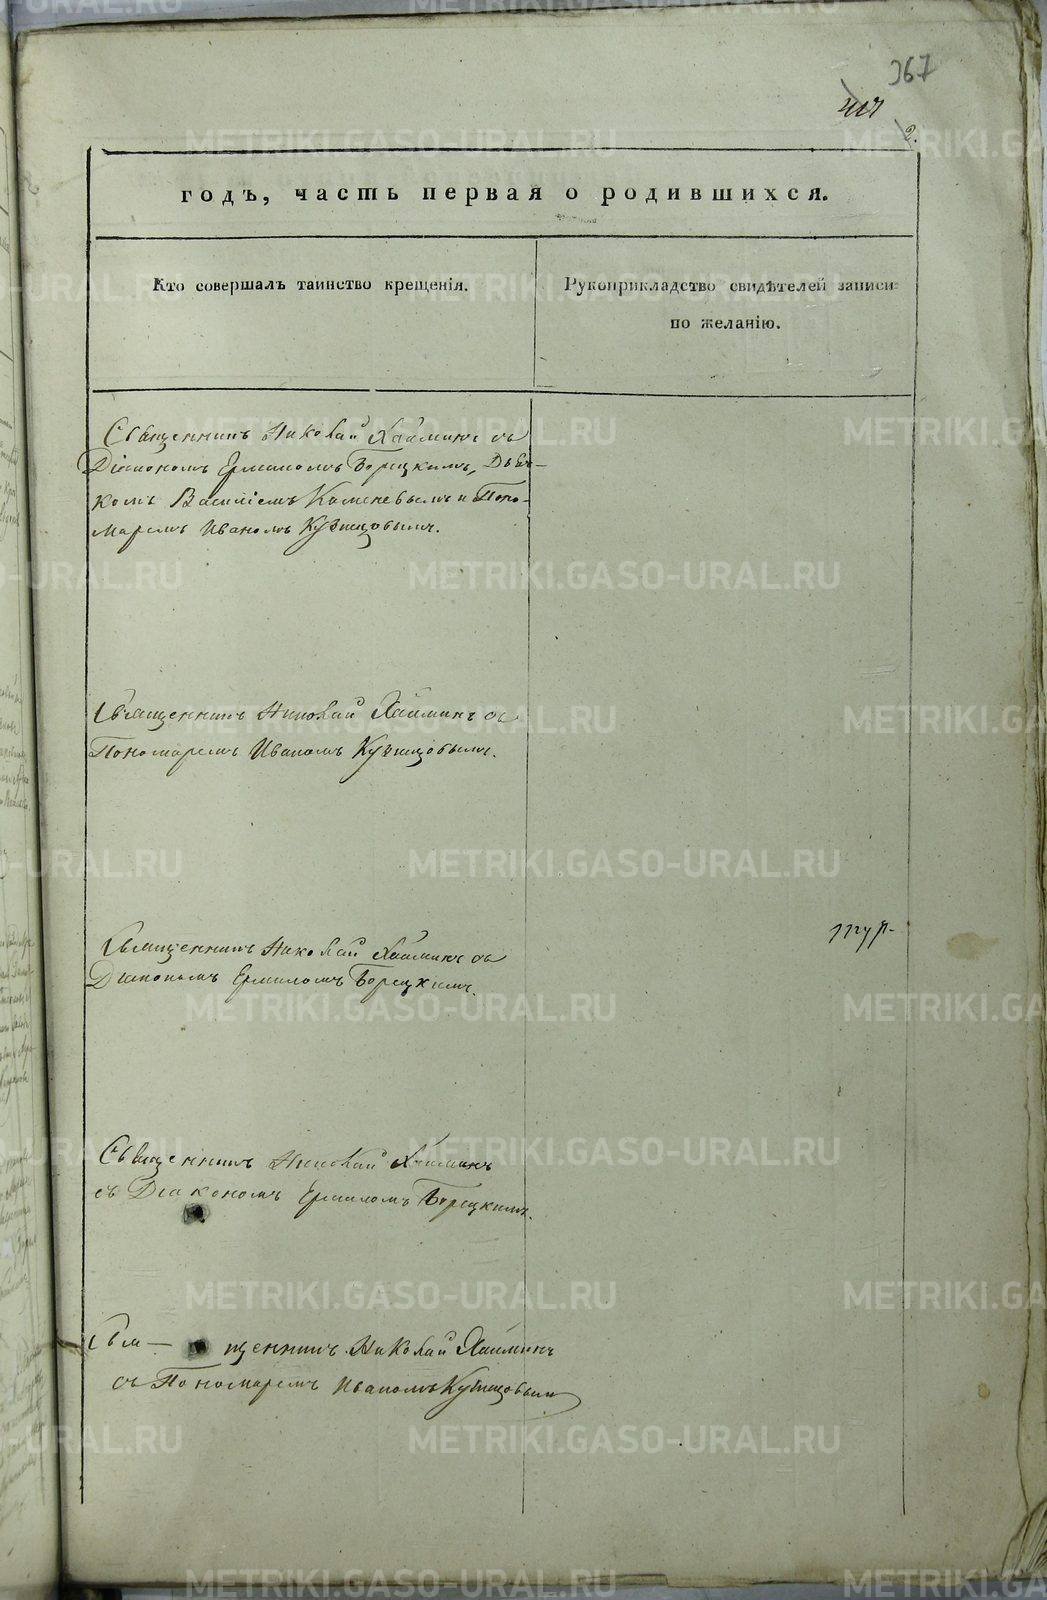 367
2.
годъ, часть первая о родившихся.
Кто совершалъ таинство крещенія.
Рукоприкладство свидѣтелей записи
по желанію.
Священникъ Николай Хайминъ съ
Діакономъ Ермиломъ Борецкимъ, Дьяч-
комъ Василіемъ Каменевымъ и Поно-
маремъ Иваномъ Кузнецовымъ.
Священникъ Николай Хайминъ съ
Пономаремъ Иваномъ Кузнецовымъ.
Священникъ Николай Хайминъ съ
Діакономъ Ермиломъ Борецкимъ.
Священникъ Николай Хайминъ
съ Діакономъ Ермиломъ Борецкимъ.
Свя— щенникъ Николай Хайминъ
съ Пономаремъ Иваномъ Кузнецовым
METRIKI.GASO-URAL.RU